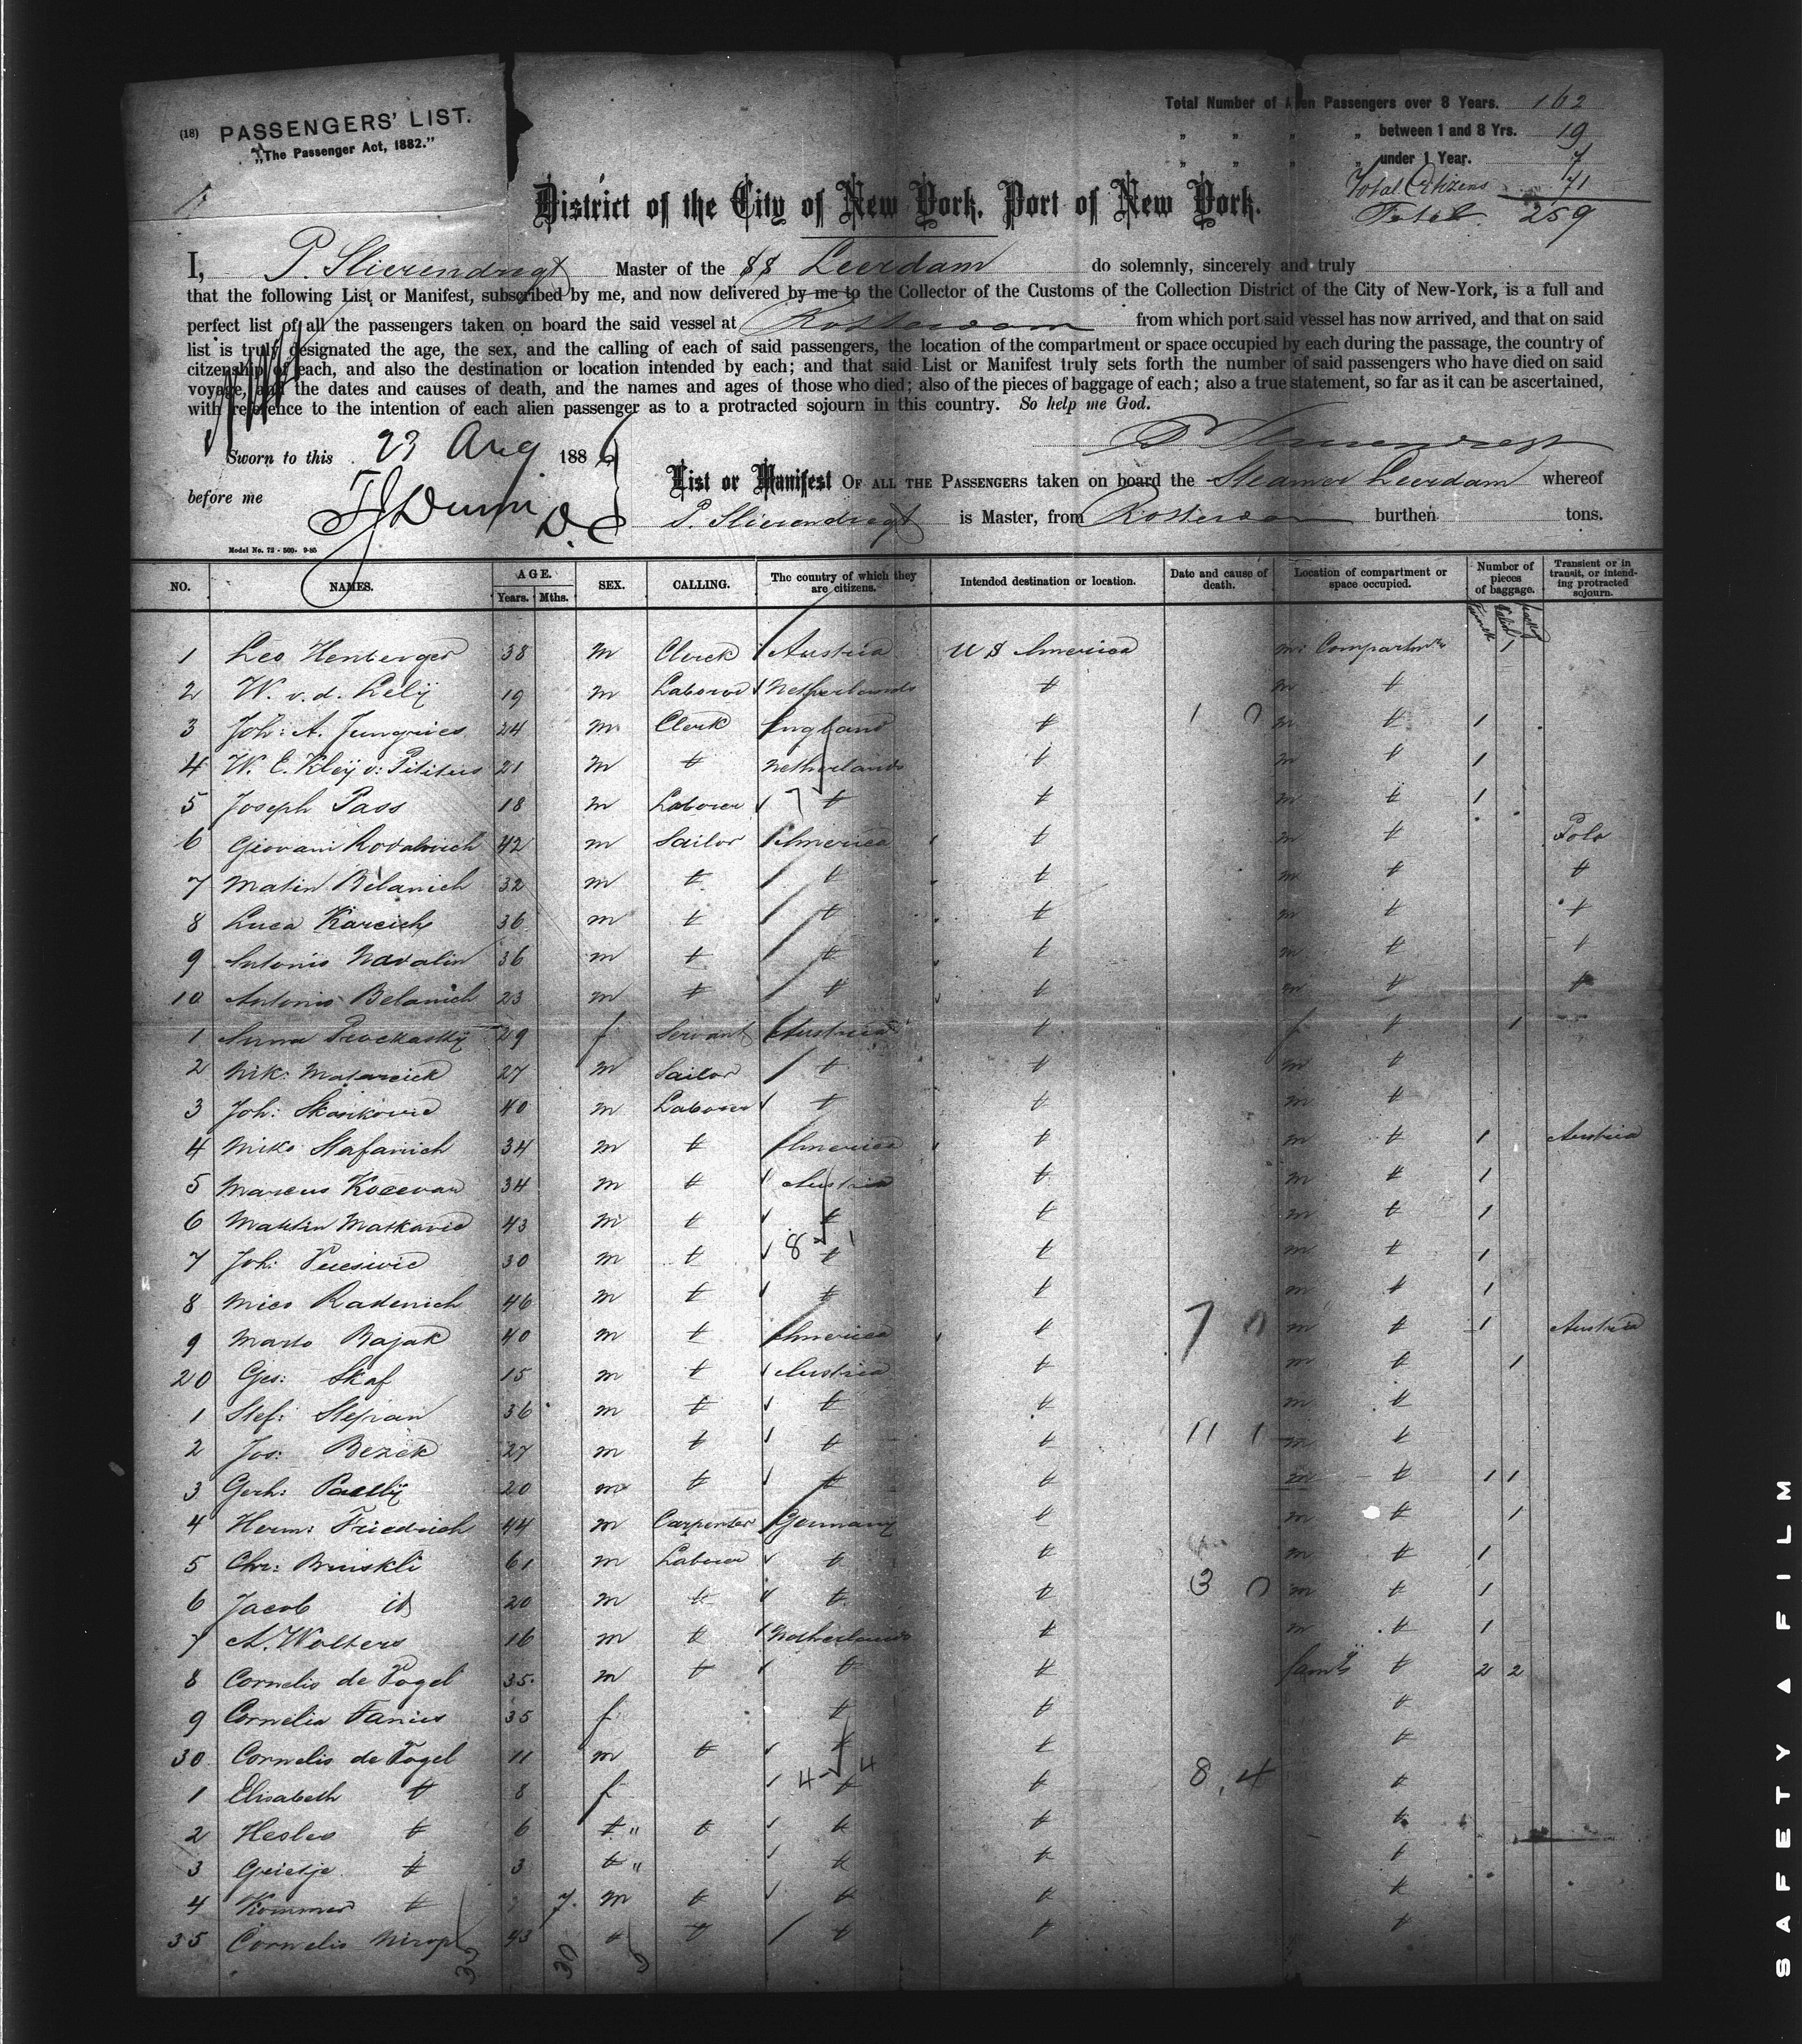 (18) PASSENGERS' LIST.
„The Passenger Act, 1882."
Total Number of Alien Passengers over 8 Years. 162
„ „ „ „ between 1 and 8 Yrs. 19
„ „ „ „ under 1 Year. 7
Total Citizens 71
Total 259
District of the City of New York, Port of New York.
I, P. Stierendregt Master of the SS Leerdam do solemnly, sincerely and truly
that the following List or Manifest, subscribed by me, and now delivered by me to the Collector of the Customs of the Collection District of the City of New-York, is a full and
perfect list of all the passengers taken on board the said vessel at Rotterdam from which port said vessel has now arrived, and that on said
list is truly designated the age, the sex, and the calling of each of said passengers, the location of the compartment or space occupied by each during the passage, the country of
citzenship of each, and also the destination or location intended by each; and that said List or Manifest truly sets forth the number of said passengers who have died on said
voyage, and the dates and causes of death, and the names and ages of those who died; also of the pieces of baggage of each; also a true statement, so far as it can be ascertained,
with reference to the intention of each alien passenger as to a protracted sojourn in this country. So help me God.
Sworn to this 23 Aug 1886
before me
List or Manifest OF ALL THE PASSENGERS taken on board the Steamer Leerdam whereof
P. Stierendregt is Master, from Rotterdam burthen tons.
Model No. 72 - 500- 9-85
NO. NAMES. AGE. Years. Mths. SEX. CALLING. The country of which they are citizens. Intended destination or location. Date and cause of death. Location of compartment or space occupied. Number of pieces of baggage. Transient or in transit, or intending protracted sojourn.
1 Leo Henberger 38 m Clerk Austria U S America m: 1
2 W. v. d. Lelÿ 19 m Laborer Netherlands t m t
3 Joh: A. Jungries 24 m Clerk England t m t 1
4 W. E. Kleÿ v: Pititus 21 m t Netherlands t m t 1
5 Joseph Pass 18 m Laborer t t m t 1
6 Giovani 42 m Sailor America t m t Pola
7 Matin Belanich 32 m t t t m t t
8 Luca Karcich 36 m t t t m t t
9 Antonio Nadalin 36 m t t t m t t
10 Antonio Belanich 23 m t t t m t t
1 Anna 29 f Servant Austria t f t 1
2 Nik: 27 m Sailor t t m t
3 Joh: 40 m Laborer t t m t
4 Miko Stafanich 34 m t America t m t 1 Austria
5 Marcus Kocevar 34 m t Austria t m t 1
6 Martin Matkavic 43 m t t t m t 1
7 Joh: 30 m t t t m t 1
8 Mico Radenich 46 m t t t m t 1
9 Marto Bajak 40 m t America t m t 1 Austria
20 Skaf 15 m t Austria t m t 1
1 Stef: Stefran 36 m t t t m t
2 Jos: Bezek 27 m t t t m t
3 Gerh: 20 m t t t m t 1 1
4 Herm: Friedrich 44 m Carpenter Germany t m t 1
5 Chr: Bruiskli 61 m Laborer t t m t 1
6 Jacob id 20 m t t t m t 1
7 A. Wolters 16 m t Netherlands t m t 1
8 Cornelis de Vogel 35 m t t t t 2 2
9 Cornelia Fanius 35 f t t t
30 Cornelis de Vogel 11 m t t t t
1 Elisabeth t 8 f t t t
2 t 6 t " t t t t
3 Geertje t 3 t " t t t
4 Kommer t 7 m t t t t
35 Cornelis Nirop 43 t t t t t
SAFETY ▲ FILM